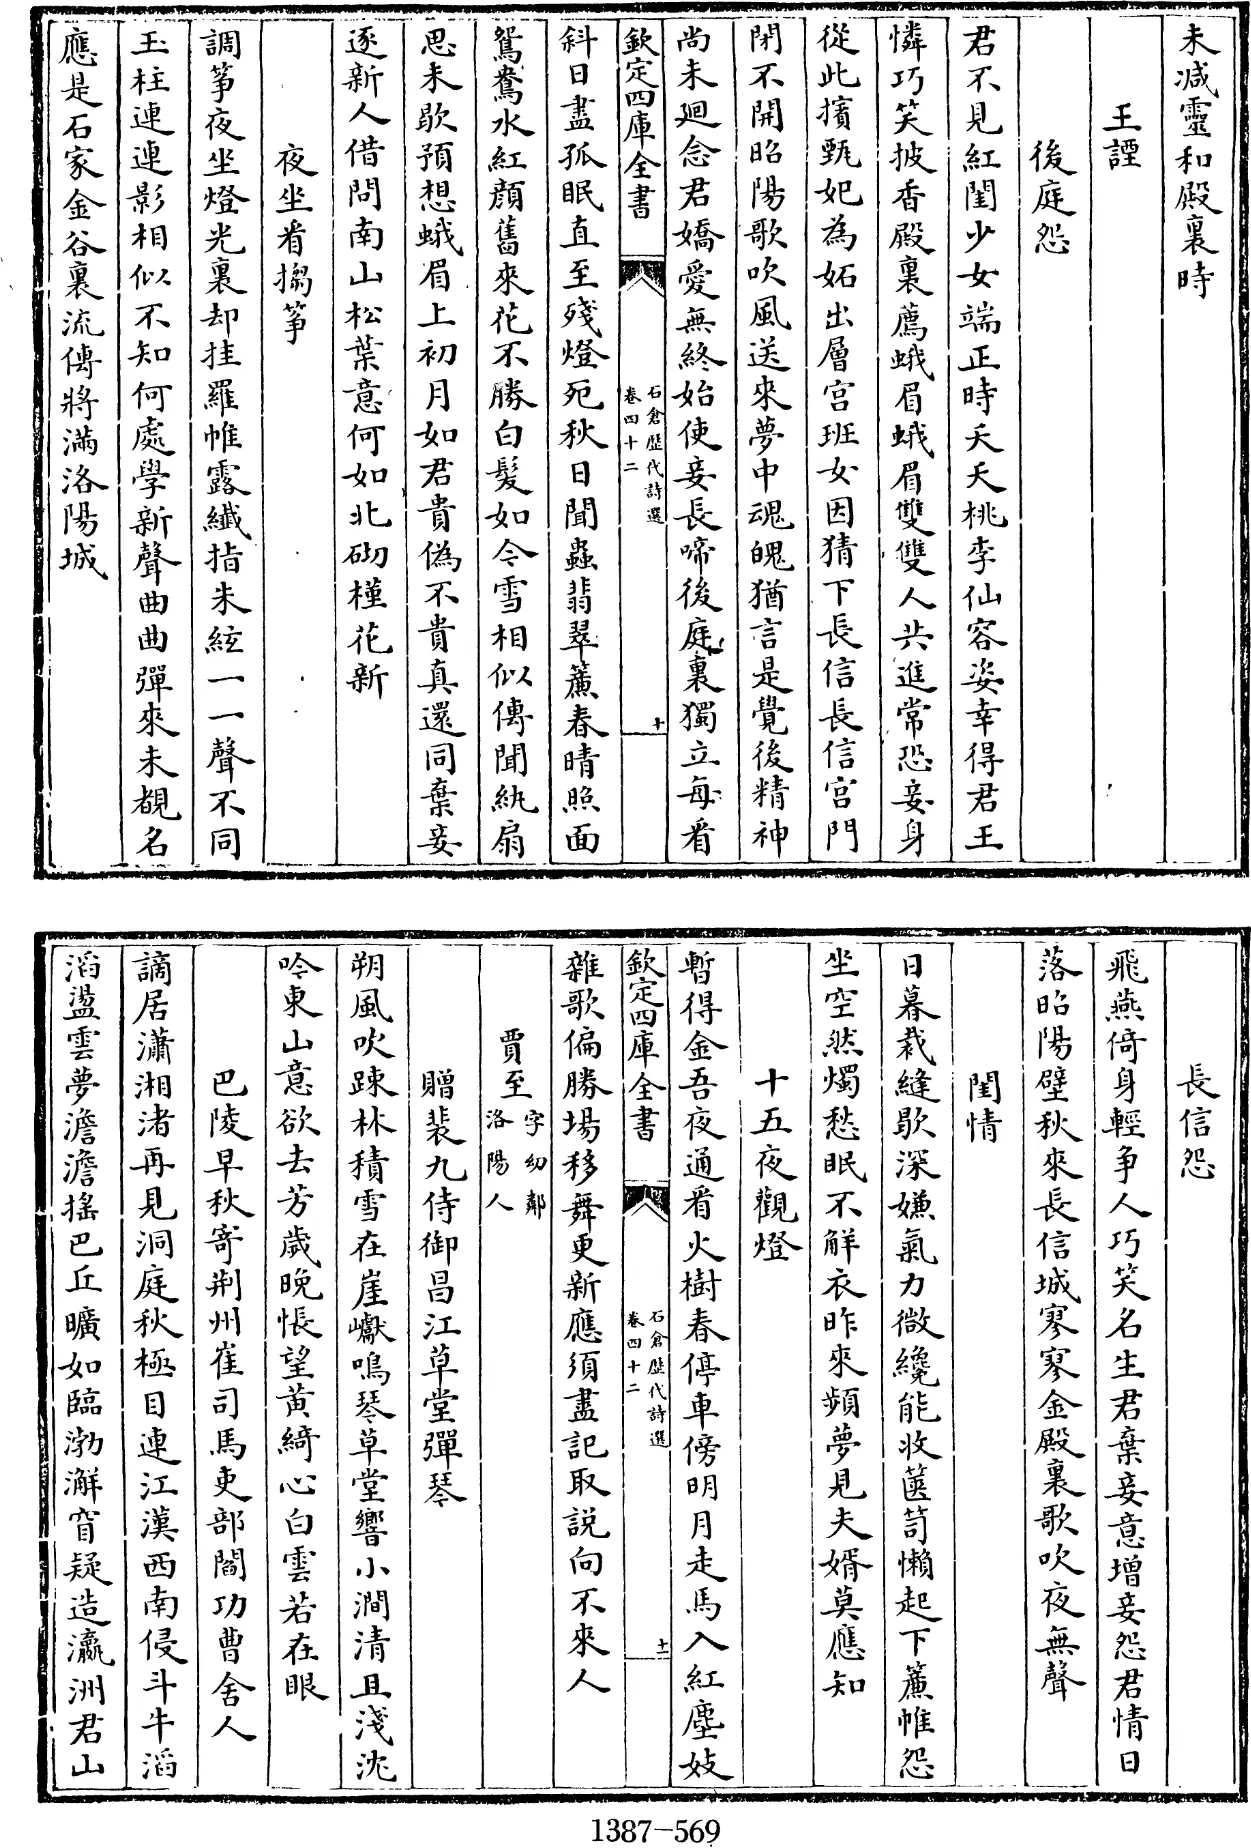 未減靈和殿裏時
王諲
後庭怨
君不見紅閨少女端正時夭夭桃李仙容姿幸得君王
憐巧笑披香殿裏薦蛾眉蛾眉雙雙人共進常恐妾身
從此擯甄妃為妬出層宫班女因猜下長信長信宫門
閉不開昭陽歌吹風送來夢中魂魄猶言是覺後精神
尚未廻念君嬌愛無終始使妾長啼後庭裏獨立每看
欽定四庫全書
石倉歴代詩選
卷四十二
十
斜日盡孤眠直至殘燈死秋日聞蟲翡翠簾春晴照面
鴛鴦水紅顔舊來花不勝白髪如今雪相似傳聞紈扇
思未歇預想蛾眉上初月如君貴偽不貴真還同棄妾
逐新人借問南山松葉意何如北砌槿花新
夜坐看搊筝
調筝夜坐燈光裏却挂羅帷露纎指朱絃一一聲不同
玉柱連連影相似不知何處學新聲曲曲彈來未覩名
應是石家金谷裏流傳將滿洛陽城
長信怨
飛燕倚身輕争人巧笑名生君棄妾意增妾怨君情日
落昭陽壁秋來長信城寥寥金殿裏歌吹夜無聲
閨情
日暮裁縫歇深嫌氣力微纔能收篋笥懶起下簾帷怨
坐空然燭愁眠不解衣昨來頻夢見夫婿莫應知
十五夜觀燈
暫得金吾夜通看火樹春停車傍明月走馬入紅塵妓
欽定四庫全書
石倉歴代詩選
卷四十二
十一
雜歌偏勝場移舞更新應須盡記取説向不來人
賈至
字幼鄰
洛陽人
贈裴九侍御昌江草堂彈琴
朔風吹疎林積雪在崖巘鳴琴草堂響小澗清且淺沈
吟東山意欲去芳歲晚悵望黄綺心白雲若在眼
巴陵早秋寄荆州崔司馬吏部閻功曹舍人
謫居瀟湘渚再見洞庭秋極目連江漢西南侵斗牛滔
滔盪雲夢澹澹摇巴丘曠如臨渤澥窅疑造瀛洲君山
1387-569